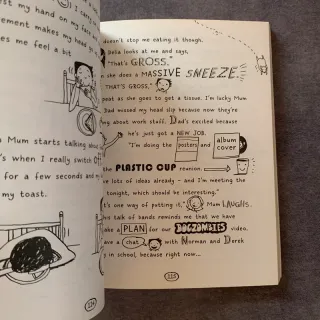 est my hand on my fair
ement makes my head
es me feel a bit
Mum starts talking about
's when I really switch
for a few seconds and
my toast.
224
doesn't stop me eating it though.
Delia looks at me and says,
"That's GROSS."
she does a MASSIVE SNEEZE.
"THAT'S GROSS,"
peat as she goes to get a tissue. I'm lucky Mum
Dad missed my head slip because now they're
ng about work stuff. Dad's excited because
he's just got a NEW JOB.
"I'm doing the posters and album cover
the PLASTIC CUP reunion.
ve lots of ideas already - and I'm meeting the
tonight, which should be interesting."
t's one way of putting it," Mum LAUGHS.
talk of bands reminds me that we have
ake a PLAN for our DOGZOMBIES video.
ave a chat with Norman and Derek
in school, because right now...
225